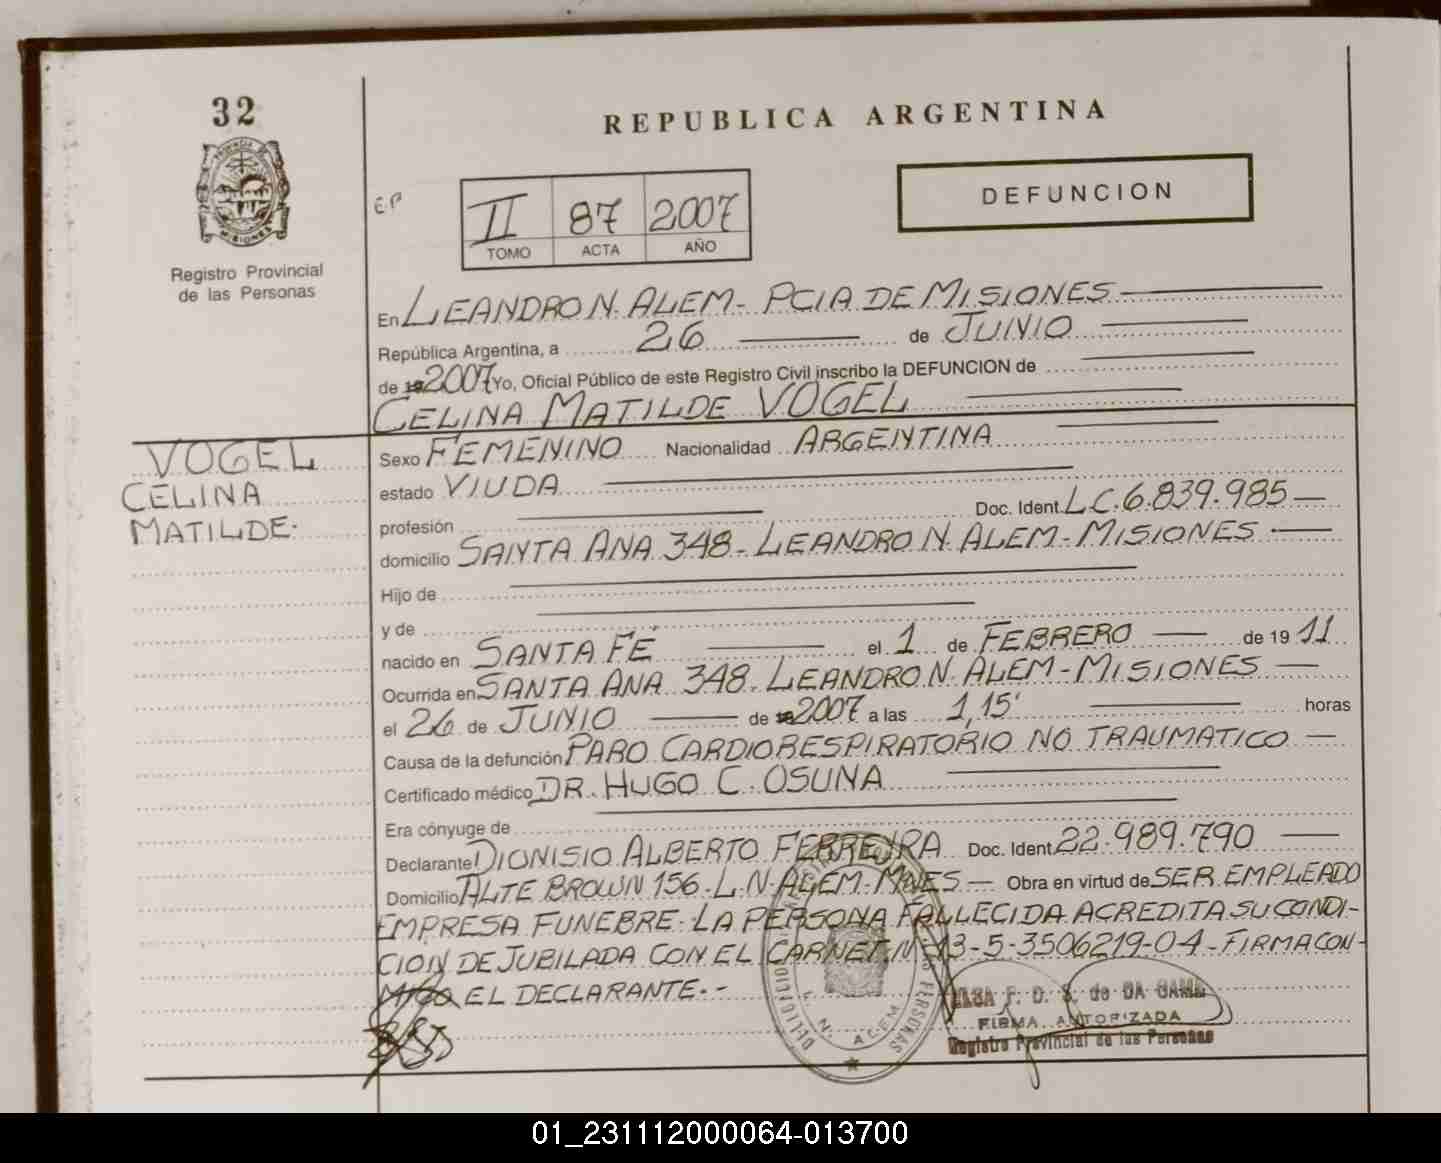 32
PROVINCIA DE
MISIONES
Registro Provincial
de las Personas
REPUBLICA ARGENTINA
E.P
II 87 2007
TOMO ACTA AÑO
DEFUNCION
En LEANDRO N. ALEM - PCIA DE MISIONES
República Argentina, a 26 de JUNIO
de 2007 Yo, Oficial Público de este Registro Civil inscribo la DEFUNCION de
CELINA MATILDE VOGEL
VOGEL
CELINA
MATILDE.
Sexo FEMENINO Nacionalidad ARGENTINA
estado VIUDA
profesión Doc. Ident. L.C. 6.839.985 —
domicilio SANTA ANA 348 - LEANDRO N. ALEM - MISIONES —
Hijo de
y de
nacido en SANTA FÉ el 1 de FEBRERO — de 19 11
Ocurrida en SANTA ANA 348. LEANDRO N. ALEM - MISIONES —
el 26 de JUNIO — de 2007 a las 1,15' horas
Causa de la defunción PARO CARDIORESPIRATORIO NO TRAUMATICO —
Certificado médico DR. HUGO C. OSUNA
Era cónyuge de
Declarante DIONISIO ALBERTO FERREIRA Doc. Ident. 22.989.790 —
Domicilio ALTE BROWN 156 - L.N. ALEM - MNES — Obra en virtud de SER EMPLEADO
EMPRESA FUNEBRE - LA PERSONA FALLECIDA ACREDITA SU CONDI-
CION DE JUBILADA CON EL CARNET Nº 13-5-3506219-0-4 - FIRMA CON-
MIGO EL DECLARANTE.-
L. N. ALEM
PERSONAS
de DA GAMA
FIRMA AUTORIZADA
Registro Provincial de las Personas
01_231112000064-013700